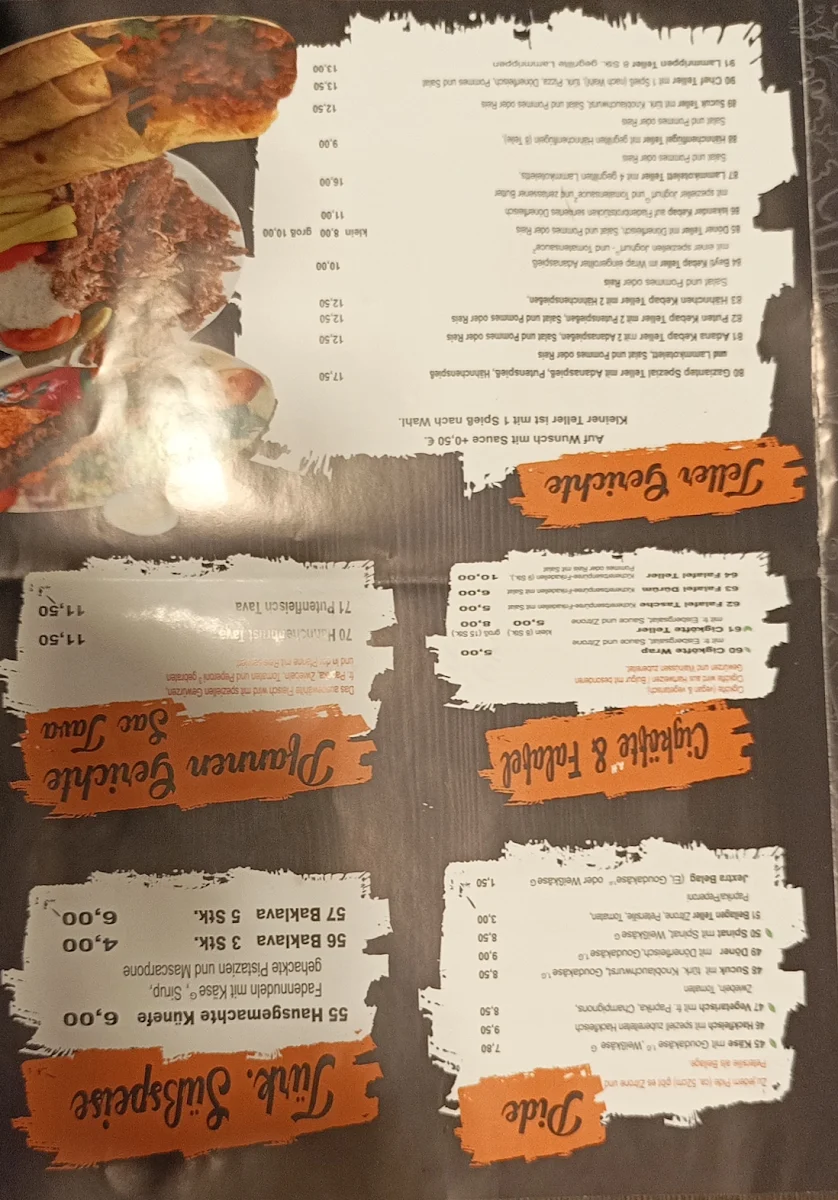 Pide
Zu jedem Pide (ca. 52cm) gibt es Zitrone und
Petersilie als Beilage
45 Käse mit Goudakäse ¹·ᴳ, Weißkäse ᴳ 7,80
46 Hackfleisch mit speziel zubereiteten Hackfleisch 9,50
47 Vegetarisch mit fr. Paprika, Champignons, 8,50
Zwiebeln, Tomaten
48 Sucuk mit türk. Knoblauchwurst, Goudakäse ¹·ᴳ 8,50
49 Döner mit Dönerfleisch, Goudakäse ¹·ᴳ 9,00
50 Spinat mit Spinat, Weißkäse ᴳ 8,50
51 Beilagen Teller Zitrone, Petersilie, Tomaten, 3,00
Paprika/Peperoni
Jextra Belag (Ei, Goudakäse ¹·ᴳ oder Weißkäse ᴳ 1,50
Türk. Süßspeise
55 Hausgemachte Künefe 6,00
Fadennudeln mit Käse ᴳ, Sirup,
gehackte Pistazien und Mascarpone
56 Baklava 3 Stk. 4,00
57 Baklava 5 Stk. 6,00
Cigköfte & Falafel
Cigköfte (vegan & vegetarisch)
Cigköfte wird aus Hartweizen / Bulgur mit besonderen
Gewürzen und Walnüssen zubereitet.
60 Cigköfte Wrap 5,00
mit fr. Eisbergsalat, Sauce und Zitrone
61 Cigköfte Teller klein (8 Stk.) 5,00 groß (15 Stk.) 8,00
mit fr. Eisbergsalat, Sauce und Zitrone
62 Falafel Tasche Kichererbsenpüree-Frikadellen mit Salat 5,00
63 Falafel Dürüm Kichererbsenpüree-Frikadellen mit Salat 6,00
64 Falafel Teller Kichererbsenpüree-Frikadellen (6 Stk.), 10,00
Pommes oder Reis mit Salat
Pfannen Gerichte
Sac Tava
Das auserwählte Fleisch wird mit speziellen Gewürzen,
fr. Paprika, Zwiebeln, Tomaten und Peperoni ⁹ gebraten
und in der Pfanne mit Reis serviert
70 Hähnchenbrust Tava 11,50
71 Putenfleisch Tava 11,50
Teller Gerichte
Auf Wunsch mit Sauce +0,50 €.
Kleiner Teller ist mit 1 Spieß nach Wahl.
80 Gaziantep Spezial Teller mit Adanaspieß, Putenspieß, Hähnchenspieß 17,50
und Lammkotelett, Salat und Pommes oder Reis
81 Adana Kebap Teller mit 2 Adanaspießen, Salat und Pommes oder Reis 12,50
82 Puten Kebap Teller mit 2 Putenspießen, Salat und Pommes oder Reis 12,50
83 Hähnchen Kebap Teller mit 2 Hähnchenspießen, 12,50
Salat und Pommes oder Reis
84 Beyti Kebap Teller im Wrap eingerollter Adanaspieß 10,00
mit einer speziellen Joghurt ᴳ - und Tomatensauce ²
85 Döner Teller mit Dönerfleisch, Salat und Pommes oder Reis klein 8,00 groß 10,00
86 Iskender Kebap auf Fladenbrotstücken serviertes Dönerfleisch 11,00
mit spezieller Joghurt ᴳ und Tomatensauce ² und zerlassener Butter
87 Lammkotelett Teller mit 4 gegrillten Lammkoteletts, 16,00
Salat und Pommes oder Reis
88 Hähnchenflügel Teller mit gegrillten Hähnchenflügeln (8 Teile), 9,00
Salat und Pommes oder Reis
89 Sucuk Teller mit türk. Knoblauchwurst, Salat und Pommes oder Reis 12,50
90 Chef Teller mit 1 Spieß (nach Wahl), türk. Pizza, Dönerfleisch, Pommes und Salat 13,50
91 Lammrippen Teller 8 Stk. gegrillte Lammrippen 13,00